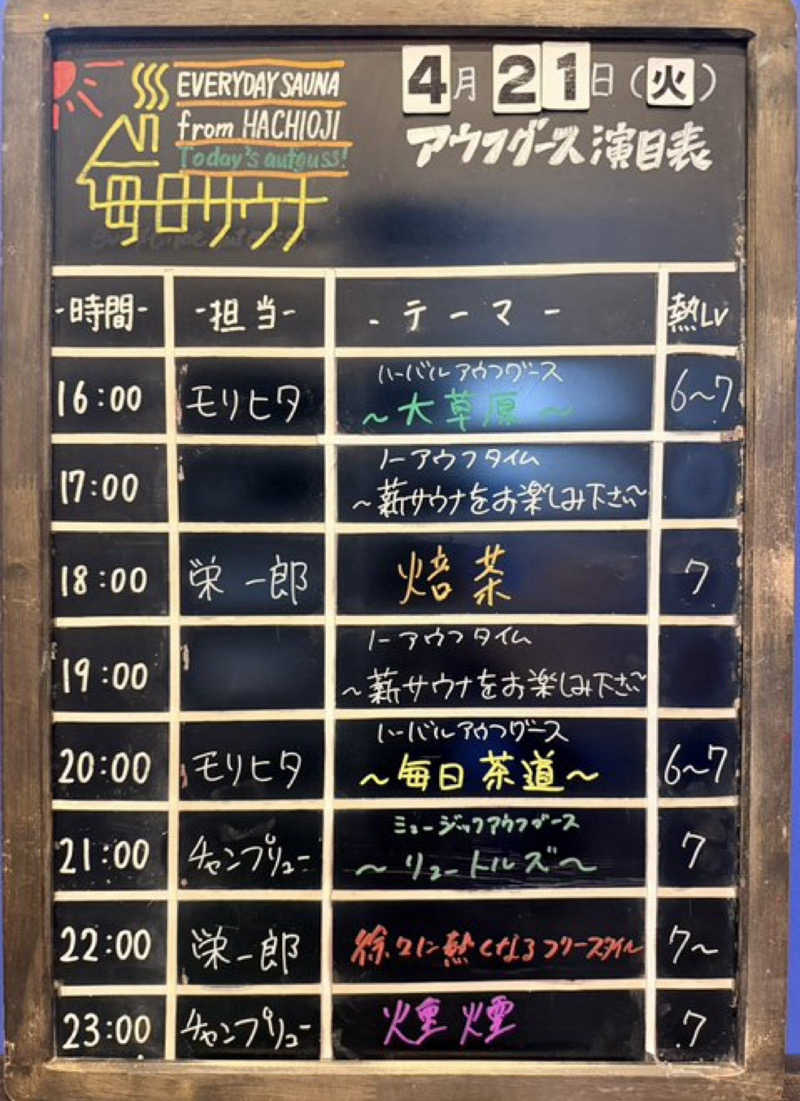 EVERYDAY SAUNA
from HACHIOJI
Today's aufguss!
毎日サウナ
4月21日(火)
アウフグース演目表
-時間- -担当- -テーマ- 熱Lv
16:00 モリヒタ ハーバルアウフグース 6~7
~大草原~
17:00 ノーアウフタイム
~薪サウナをお楽しみ下さい~
18:00 栄一郎 焙茶 7
19:00 ノーアウフタイム
~薪サウナをお楽しみ下さい~
20:00 モリヒタ ハーバルアウフグース 6~7
~毎日茶道~
21:00 チャンプリュー ミュージックアウフグース 7
~リュートルズ~
22:00 栄一郎 徐々に熱くなるフリースタイル 7~
23:00 チャンプリュー 燻煙 7